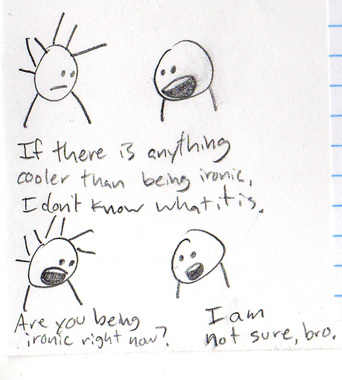 If there is anything
cooler than being ironic,
I don't know what it is.
Are you being
ironic right now?
I am
not sure, bro.